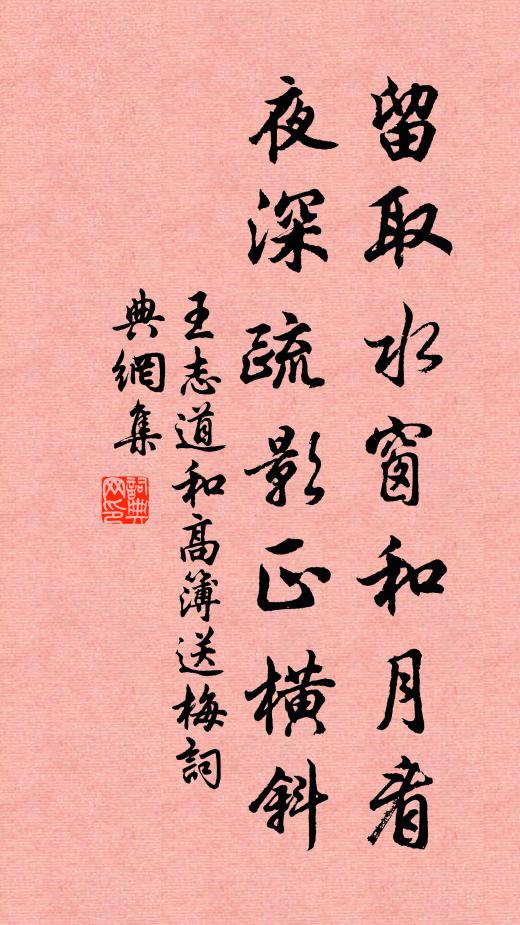 留取水窗和月看
夜深疏影正橫斜
王志道和高簿送梅詞
典網集
詞典
网印